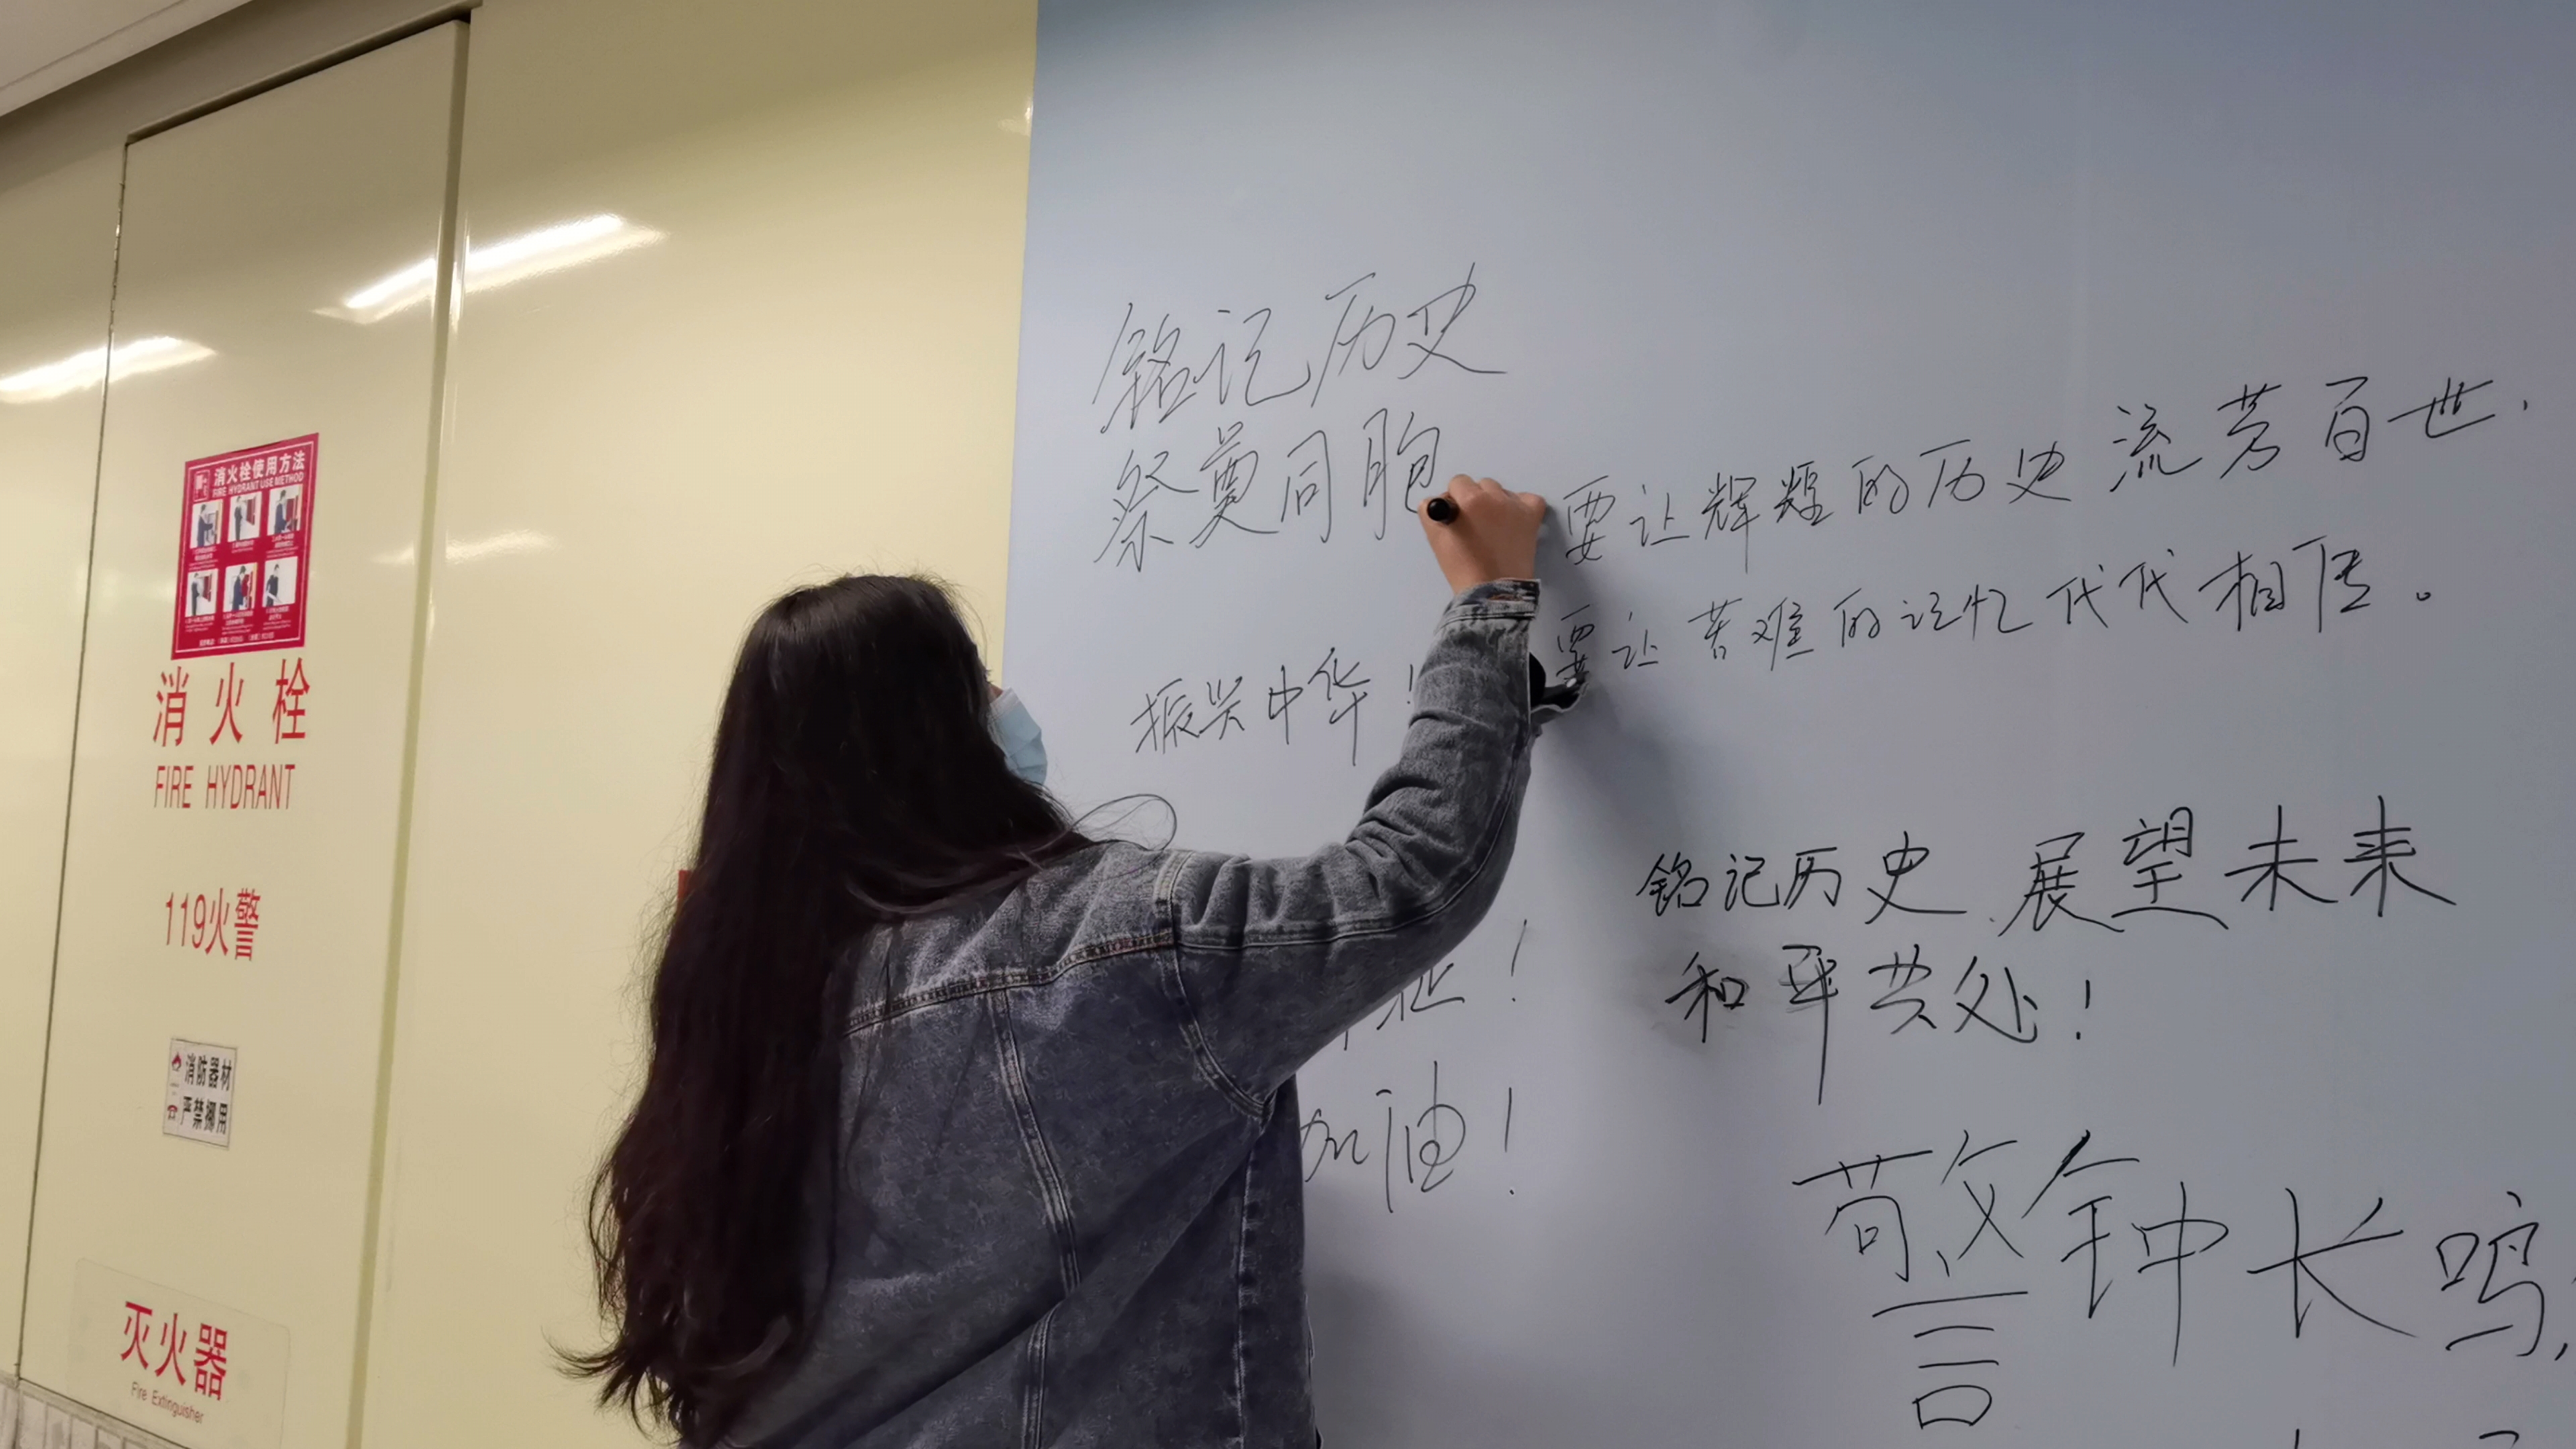 消火栓使用方法
FIRE HYDRANT USE METHOD
消火栓
FIRE HYDRANT
119火警
消防器材
严禁挪用
灭火器
Fire Extinguisher
铭记历史
祭奠同胞
振兴中华！
加油！
要让辉煌的历史流芳百世.
要让苦难的记忆代代相传。
铭记历史.展望未来
和平共处！
警钟长鸣,